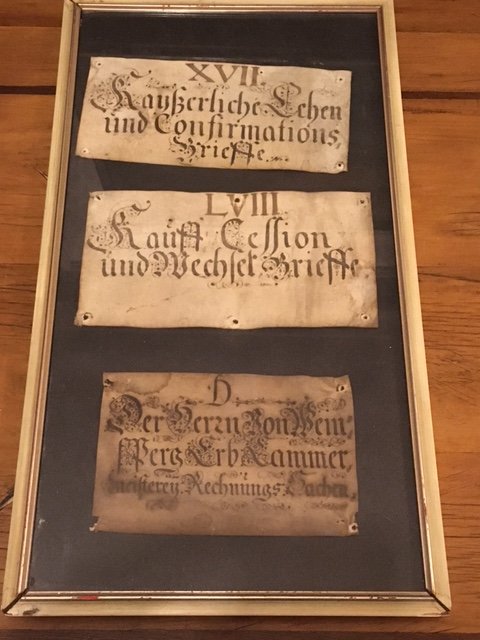 XVII.
Kaÿßerliche Lehen
und Confirmations,
Brieffe.
LVIII
Kauff, Cession
und Wechsel Brieffe.
D.
Der Herrn Von Wein,
sperg Erb Cammer,
meisterey Rechnungs Sachen,